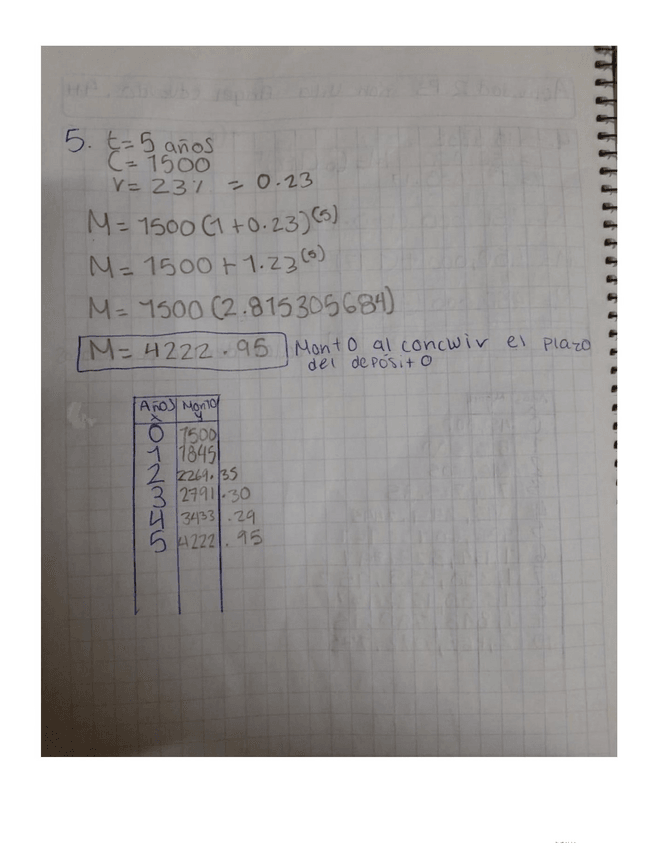 5. t=5 años
C=1500
r=23% = 0.23
M=1500(1+0.23)^(5)
M=1500+1.23^(5)
M=1500(2.815305684)
M=4222.95 Monto al concluir el plazo
del depósito
Años Monto
x y
0 1500
1 1845
2 2269.35
3 2791.30
4 3433.29
5 4222.95